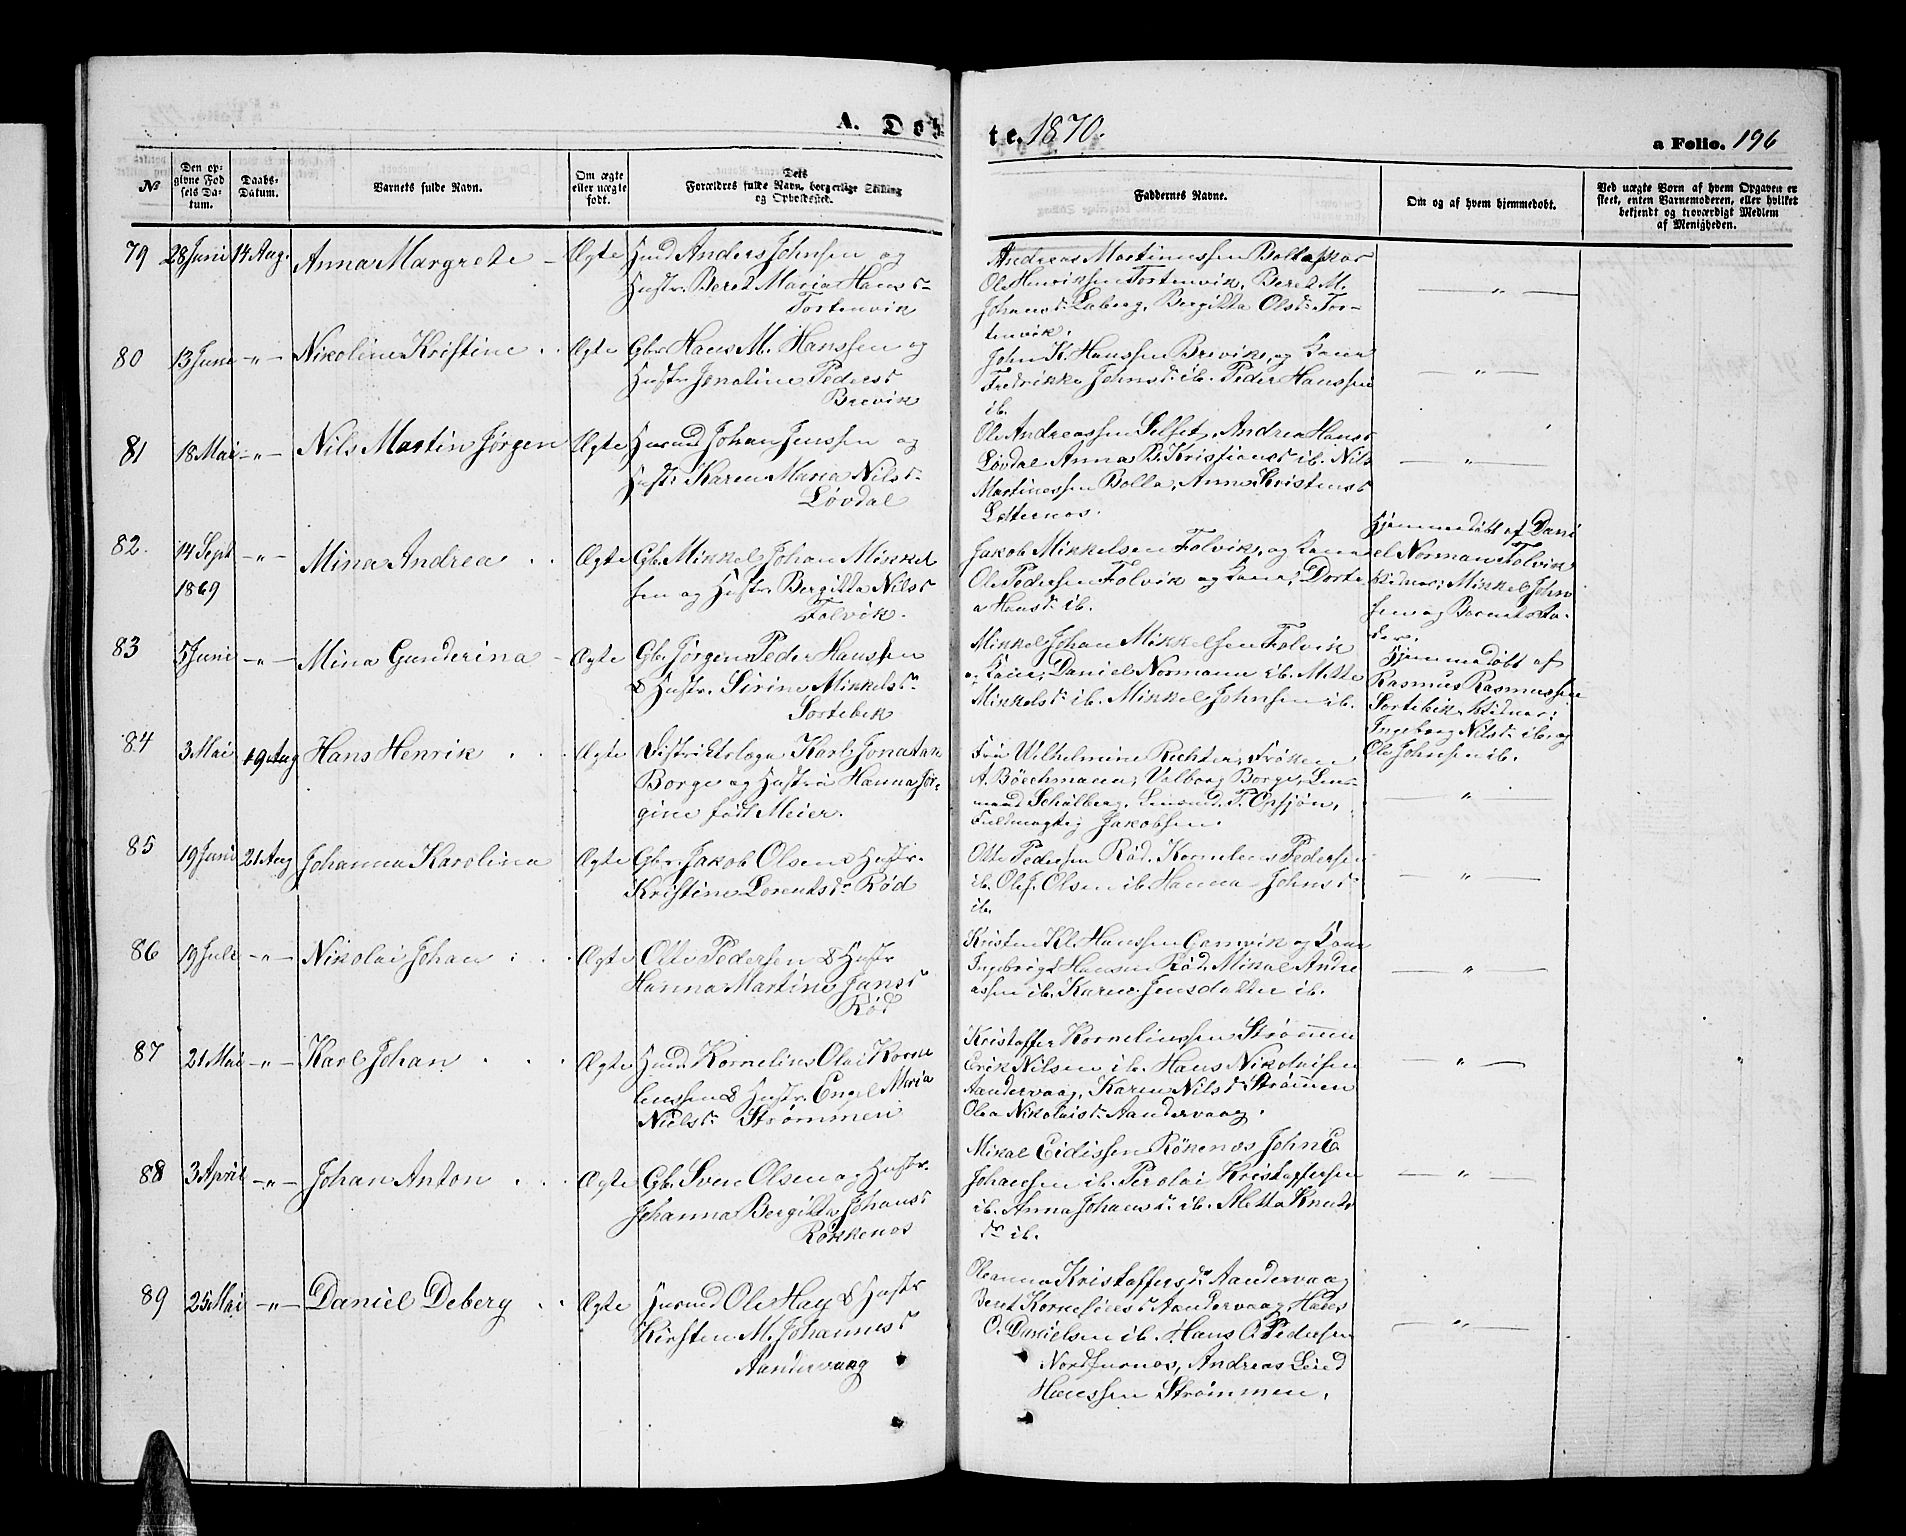 A. Døb
te. 1870.
a Folio. 196
No
Den opgivne Fødsels Datum.
Daabs-Datum.
Barnets fulde Navn.
Om ægte eller uægte født.
Dets Forældres fulde Navn, borgerlige Stilling og Opholdssted.
Faddernes Navne.
Om og af hvem hjemmedøbt.
Ved uægte Born af hvem Opgaven er skeet, enten Barnemoderen, eller hvilket bekjendt og troværdigt Medlem af Menigheden.
79 28 Juni 14 Aug. Anna Margrete - Ægte Husmd Anders Johnsen og
Hustr. Beret Maria Hansd
Tortenvik
Andreas Martinussen Bollaskar
Ole Henriksen Tortenvik, Beret M.
Johansd. Laberg, Bergitta Olsd. Tor-
tenvik.
80 13 Juni -"- Nikoline Kristine . . Ægte Gbr Hans M. Hanssen og
Hustr Jenoline Pedersd
Brevik
John K. Hanssen Brevik, og Kone
Fredrikke Johnsd. ib. Peder Hanssen
ib.
81 18 Mai -"- Nils Martin Jørgen Ægte Husmd Johan Jenssen og
Hustr Karen Maria Nilsd
Løvdal
Ole Andreassen Selset, Andrea Hansd
Løvdal Anna B. Kristiansd ib. Nils
Martinessen Bolla, Anne Kristensd
Lotternes.
82. 14 Sept -"- Mina Andrea . . Ægte Gbr. Mikkel Johan Mikkel
1869
sen og Hustr. Bergitta Nilsd
Folvik.
Jakob Mikkelsen Folvik, og Kone
Ole Pedersen Folvik og Kone, Dorte
a Hansd ib.
Hjemmedøbt af Dani
el Normann Folvik
Vidner; Mikkel John
sen og Barnets Fa-
der.
83 5 Juni -"- Mina Gunderina - Ægte Gbr Jørgen Peder Hanssen
& Hustr. Sirine Mikkelsd
Sortebek
Mikkel Johan Mikkelsen Folvik
og Kone, Daniel Normann ib. Mette
Mikkelsd ib. Mikkel Johnsen ib.
Hjemmedøbt af
Rasmus Rasmussen
Sortebek, Vidner:
Ingeborg Nilsd ib. og
Ole Johnsen ib.
84 3 Mai 19 Aug Hans Henrik . . . Ægte Distriktslæge Karl Jonatan
Borge og Hustru Hanna Jør-
gine født Meier.
Fru Vilhelmine Richter, Frøken
A. Böeckmann, Valborg Borge, Lens-
mand Schølberg, Lensmd. P. Opsjøn,
Fuldmægtig Jakobsen.
85 19 Juni 21 Aug Johanna Karolina Ægte Gbr. Jakob Olsen & Hustr.
Kristine Lorentsd. Rød
Otte Pedersen Rød. Kornelius Pedersen
ib. Ole J. Olsen ib. Hanna Johnsd
ib.
86 19 Juli -"- Nikolai Johan : . . Ægte Otte Pedersen & Hustr
Hanna Martine Jansd
Rød
Kristen Kl. Hanssen Gamvik og Kone
Ingebrigt Hansen Rød. Mikal Andre
assen ib. Karen Jensdatter ib.
87 21 Mai -"- Karl Johan . . . Ægte Husmd Kornelius Olai Korne
liussen & Hustr. Engel Maria
Nielsd. Strømmen
Kristoffer Korneliussen Strømmen
Erik Nilsen ib. Hans Nikolaisen
Aandervaag, Karen Nilsd Strømmen
Olea Nikolaisd. Aandervaag.
88 3 April -"- Johan Anton . . . Ægte Gbr. Sven Olsen og Hustr.
Johanna Bergitta Johansd
Røkkenes
Mikal Eidissen Røkenes John E
Johansen ib. Perolai Kristoffersen
ib. Anna Johansd. ib. Mette Knuts
dr ib.
89 25 Mai -"- Daniel Deberg . . Ægte Husmd Ole Hay & Hustr
Kirsten M. Johannesd
Aandervaag
Oleanna Kristoffersdr Aandervaag
Beret Korneliusd Aandervaag Hans
O. Danielsen ib. Hans O. Pedersen
Nordfurnes, Andreas Leed
Hanssen Strømmen.